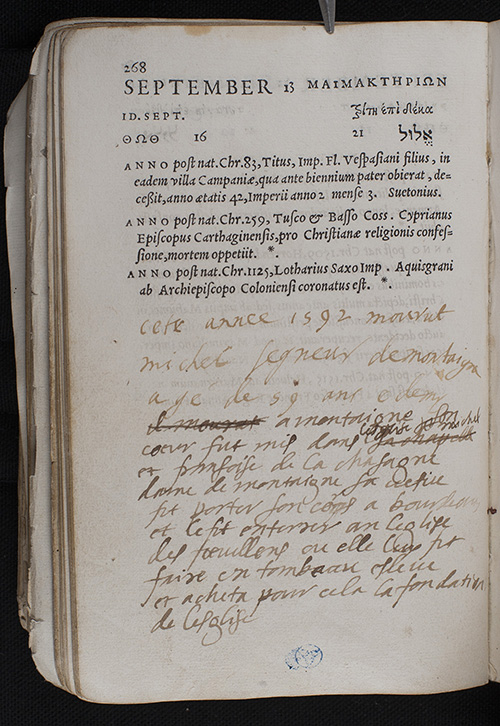 268
SEPTEMBER 13 ΜΑΙΜΑΚΤΗΡΙΩΝ
ID. SEPT. τρίτη ἐπὶ δέκα
ΘΩΘ 16 21 אלול
ANNO post nat. Chr. 83, Titus, Imp. Fl. Vespasiani filius, in
eadem villa Campaniæ, qua ante biennium pater obierat, de-
ceßit, anno ætatis 42, Imperii anno 2 mense 3. Suetonius.
ANNO post nat. Chr. 259, Tusco & Basso Coss. Cyprianus
Episcopus Carthaginensis, pro Christianæ religionis confes-
sione, mortem oppetiit. *.
ANNO post nat. Chr. 1125, Lotharius Saxo Imp. Aquisgrani
ab Archiepiscopo Coloniensi coronatus est. *.
cete annee 1592 mourut
michel segneur de montaigne
age de 59 ans e demi
a montaigne son
cœur fut mis dans leglise st michel
et fransoise de la chasagne
dame de montaigne sa
fit porter son cors a bourdeaus
et le fit enterrer an leglise
des feuillens ou elle lui fit
faire en tombeau esleve
et acheta pour cela la fondation
de leglise